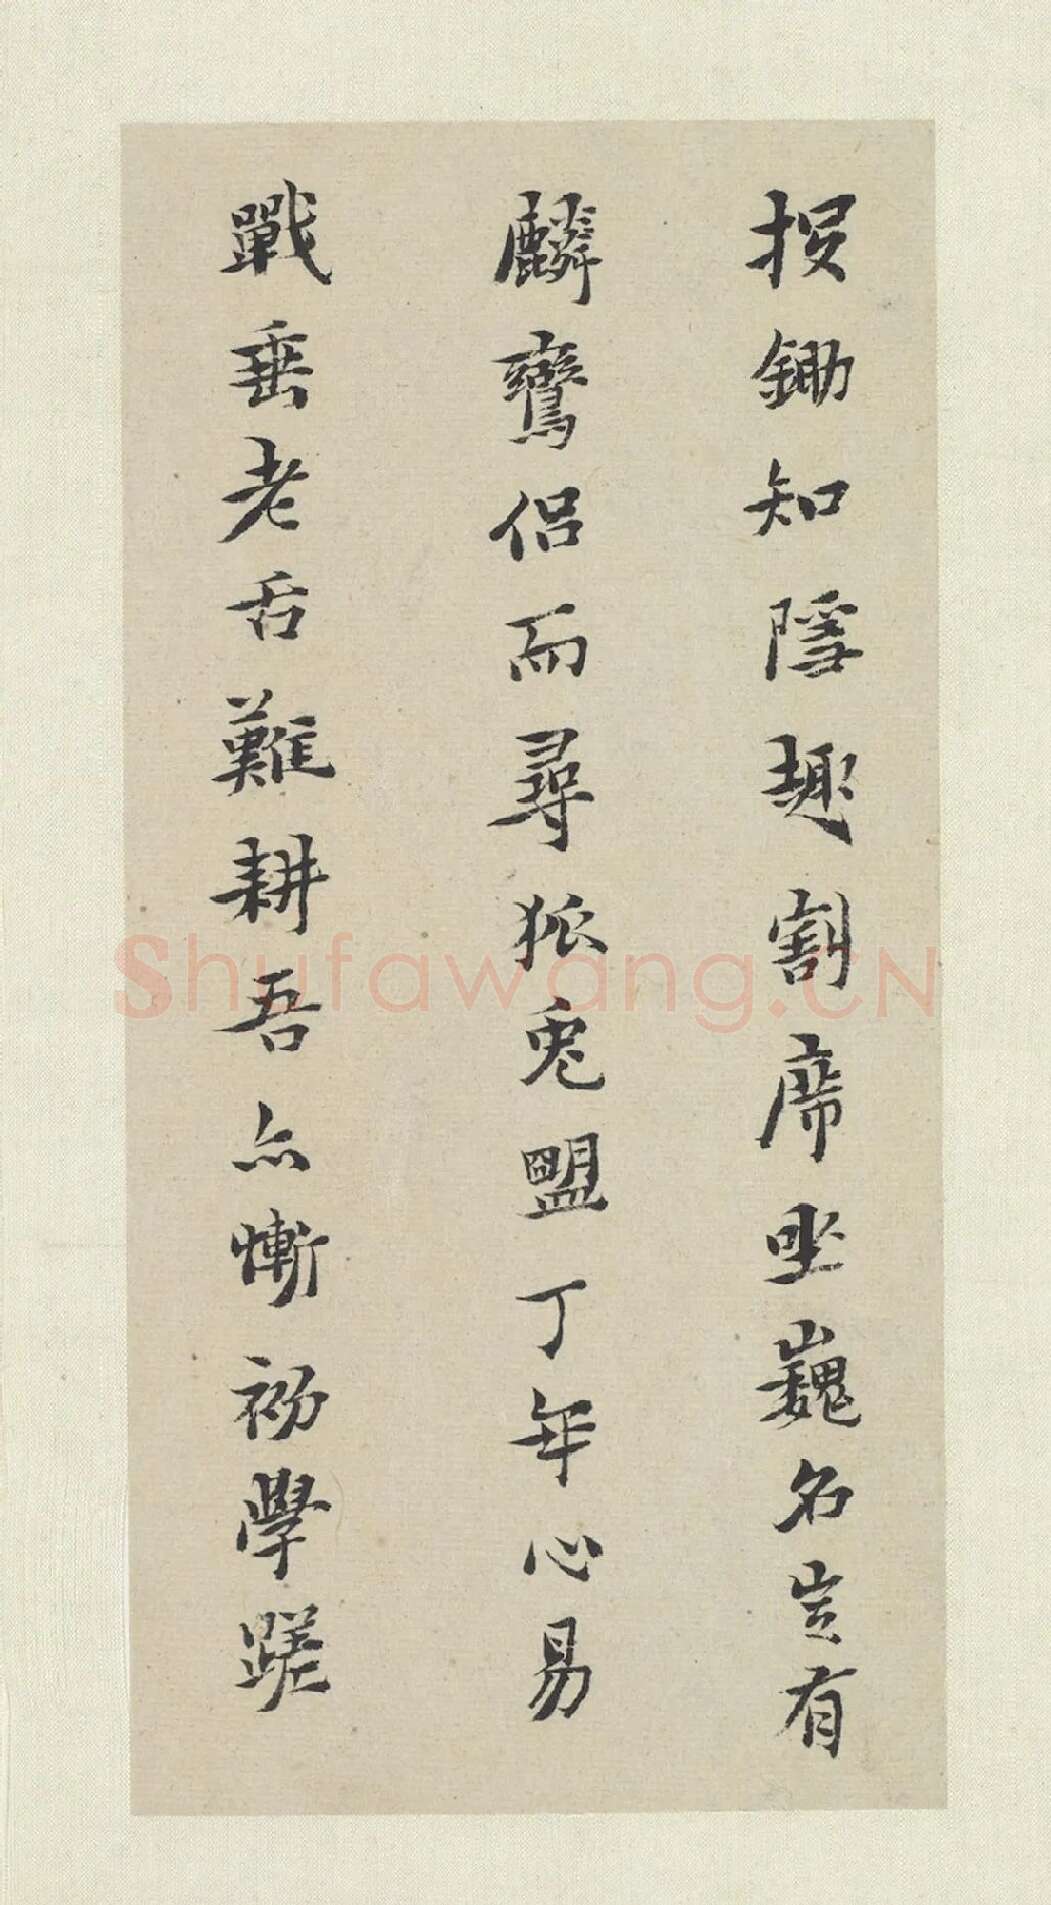 投鋤知隱趣割席坐巍名豈有
麟鸞侣而尋狐兎盟丁年心易
戰垂老舌難耕吾亦慚初學蹉
Shufawang.CN